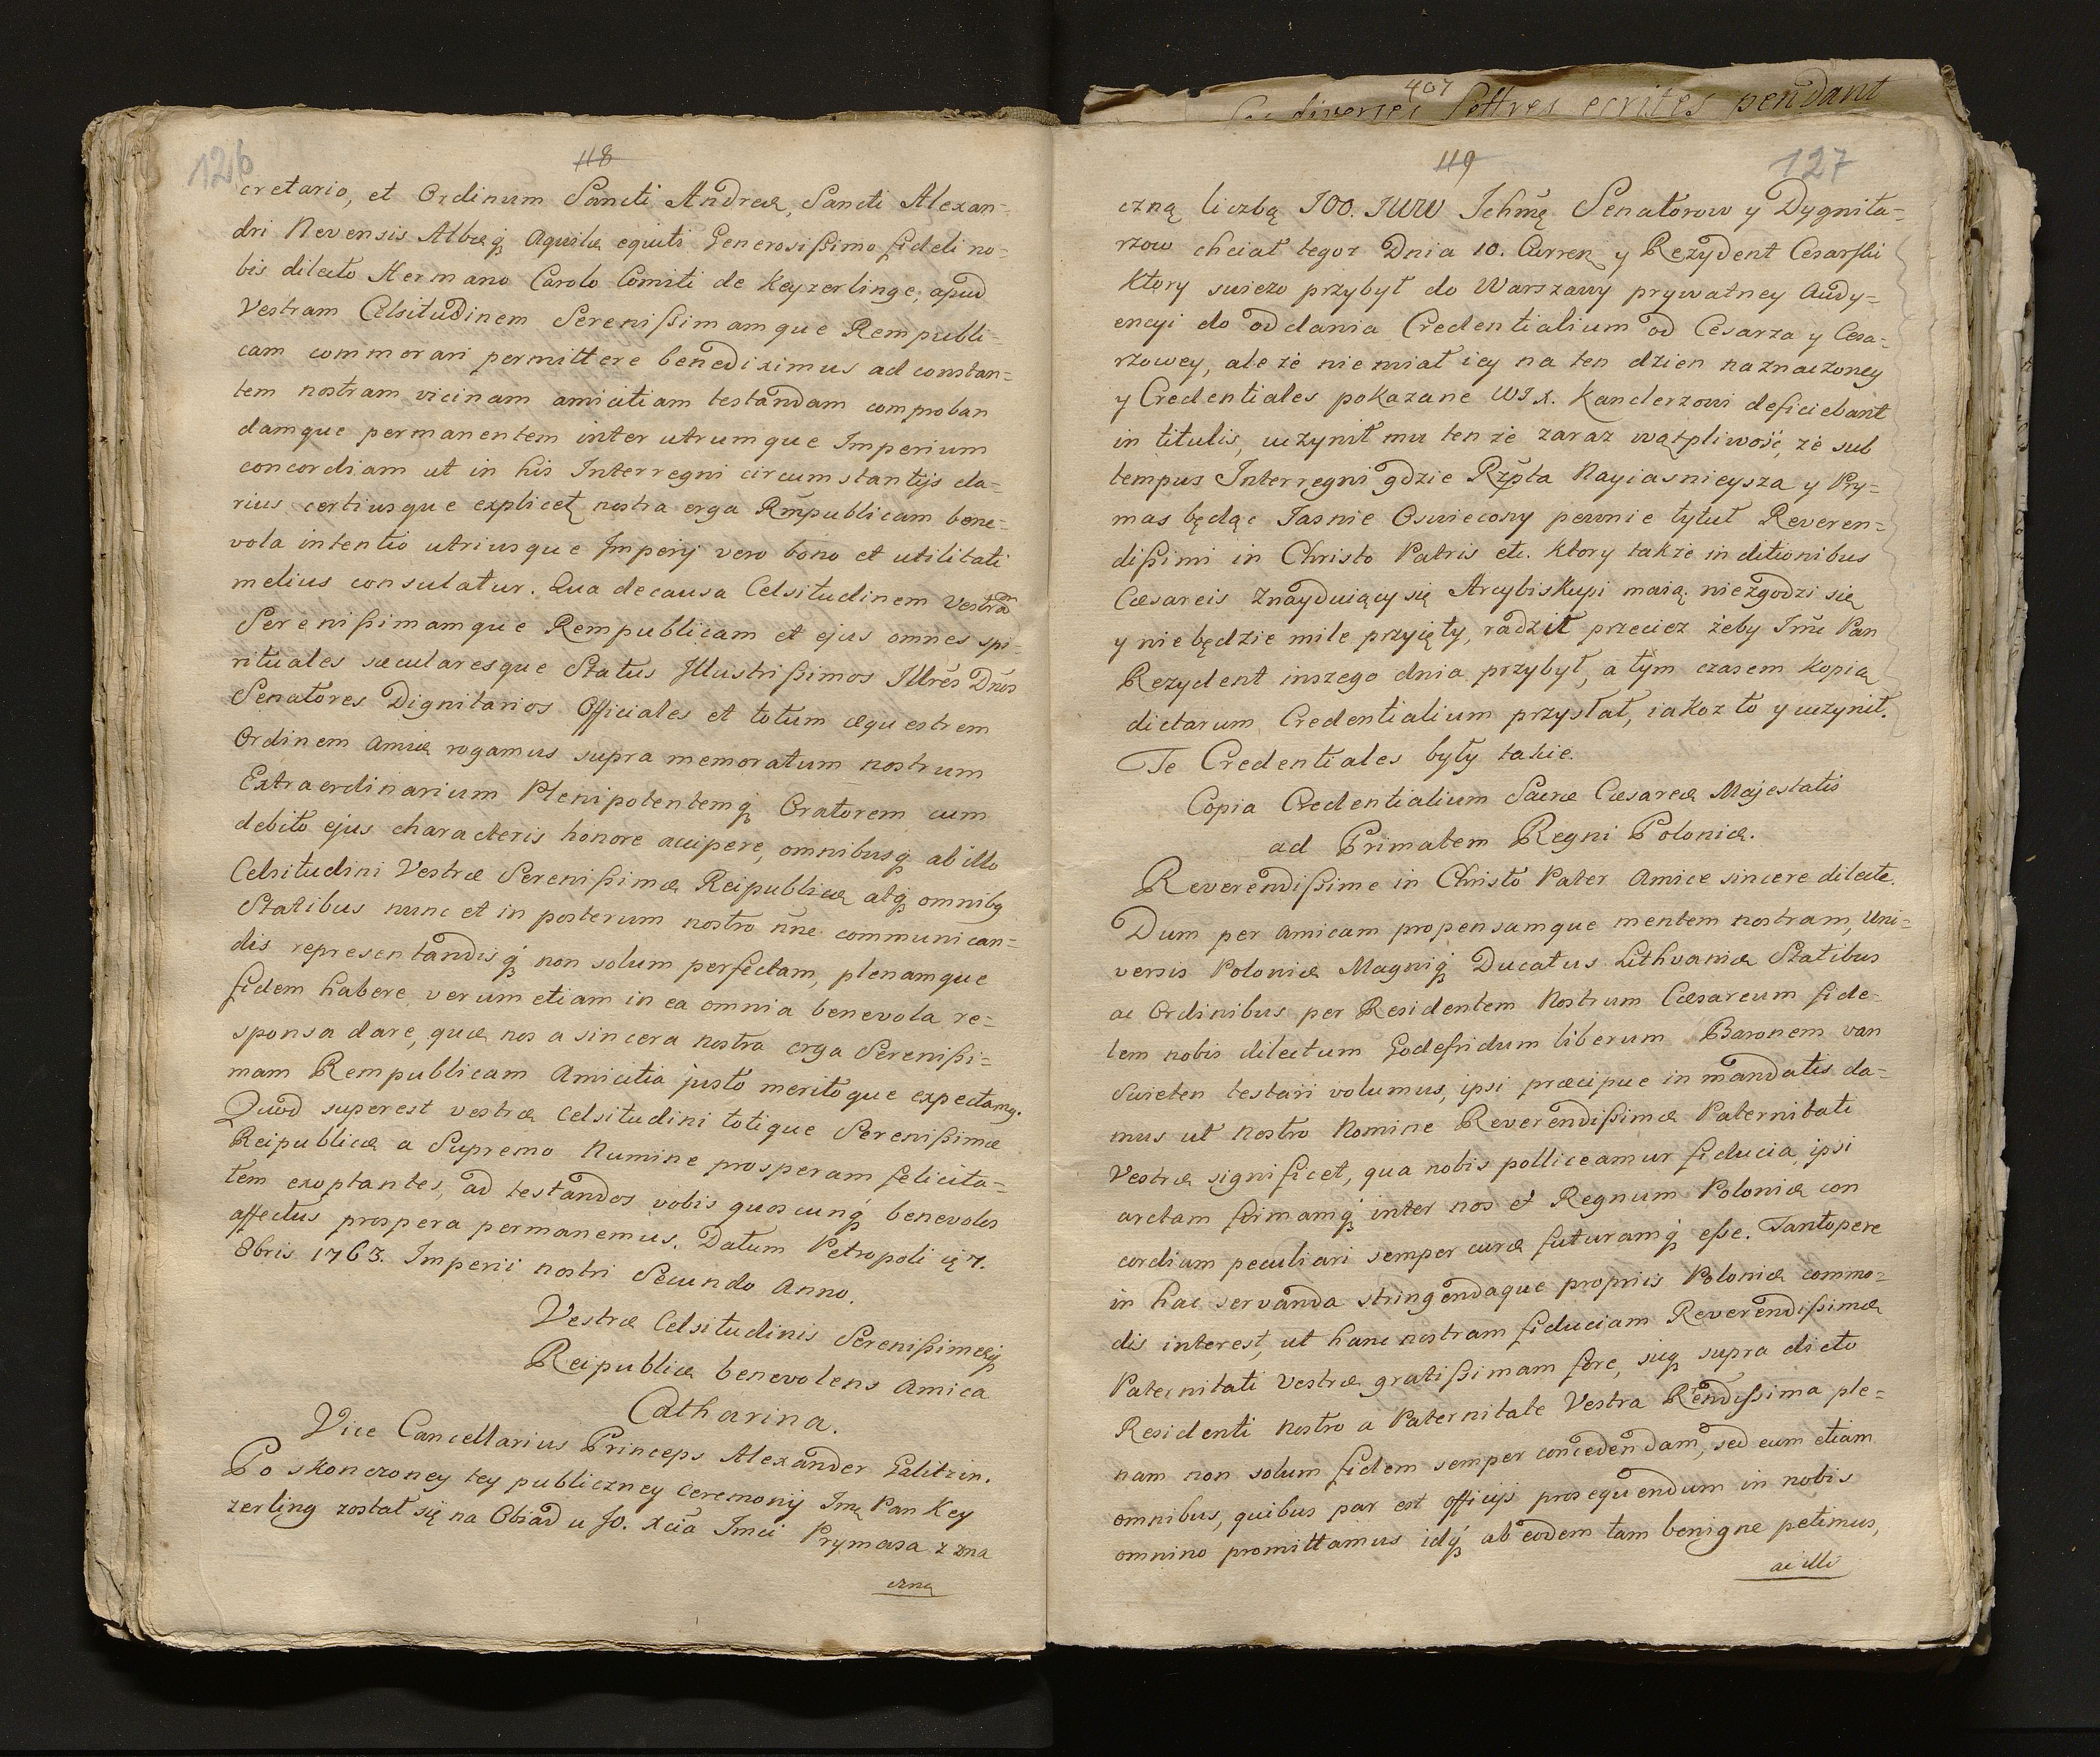 126
118
cretario, et Ordinum Sancti Andreæ, Sancti Alexan=
dri Nevensis Albæq; Aquilæ equiti Generosißimo fideli no=
bis dilecto Hermano Carolo Comiti de Keyzerlinge, apud
Vestram Celsitudinem Serenißimamque Rempubli=
cam commorari permittere benediximus ad constan=
tem nostram vicinam amicitiam testandam comproban
damque permanentem inter utrumque Imperium
concordiam ut in his Interregni circumstantijs cla=
rius certiusque explicet nostra erga Rmpublicam bene=
vola intentio utriusque Imperij vero bono et utilitati
melius consulatur. Qua de causa Celsitudinem Vestrã
Serenißimamque Rempublicam et ejus omnes spi=
rituales sæcularesque Status Illustrißimos Illres Dnos
Senatores Dignitarios Officiales et totum æquestrem
Ordinem amice rogamus supra memoratum nostrum
Extraordinarium Plenipotentemq; Oratorem cum
debito ejus characteris honore accipere, omnibusq; ab illo
Celsitudini Vestræ Serenißimæ Reipublicæ atq; omnibq
Statibus nunc et in posterum nostro nne communican=
dis representandisq; non solum perfectam, plenamque
fidem habere, verum etiam in ea omnia benevola re=
sponsa dare, quæ nos a sincera nostra erga Serenißi=
mam Rempublicam Amicitia justo meritoque expectamq.
Quod superest vestræ Celsitudini totique Serenißimæ
Reipublicæ a Supremo Numine prosperam felicita=
tem exoptantes, ad testandos vobis quoscunq; benevolos
affectus prospera permanemus. Datum Petropoli 7.
8bris 1763. Imperii nostri Secundo Anno.
Vestræ Celsitudinis Serenißimæq;
Reipublicæ benevolens Amica
Catharina.
Vice Cancellarius Princeps Alexander Galitzin.
Po skonczoney tey publiczney ceremonij Imc Pan Key
zerling został się na Obiad u JO. Xcia Imci Prymasa z zna
czną
407
diverses Lettres ecrites pendant
119
127
czną liczbą JOO. JWW Ichmę Senatorow y Dygnita=
rzow chciał tegoz Dnia 10. Curren y Rezydent Cesarski
Ktory swiezo przybył do Warszawy prywatney Audy=
encyi do oddania Credentialium od Cesarza y Cesa=
rzowey, ale że nie miał iey na ten dzien naznaczoney
y Credentiales pokazane WJX. Kanclerzowi deficiebant
in titulis, uczynił mu ten że zaraz wątpliwość, że sub
tempus Interregni gdzie Rzpta Nayiasnieysza y Pry=
mas będąc Jasnie Oswiecony pewnie tytuł Reveren=
dißimi in Christo Patris etc. ktory także in ditionibus
Cæsareis znayduiący się Arcybiskupi maią niezgodzi się
y nie będzie mile przyięty, radził przeciez żeby Imc Pan
Rezydent inszego dnia przybył, a tym czasem kopią
dictarum Credentialium przysłał, iakoz to y uczynił.
Te Credentiales były takie.
Copia Credentialium Sacræ Cæsareæ Majestatis
ad Primatem Regni Poloniæ.
Reverendißime in Christo Pater Amice sincere dilecte.
Dum per amicam propensamque mentem nostram, Uni=
versis Poloniæ Magniq; Ducatus Lithvaniæ Statibus
ac Ordinibus per Residentem Nostrum Cæsareum fide=
lem nobis dilectum Godefridum liberum Baronem van
Swieten testari volumus, ipsi præcipue in mandatis da=
mus ut nostro Nomine Reverendißimæ Paternitati
Vestræ significet, qua nobis polliceamur fiducia, ipsi
arctam firmamq; inter nos et Regnum Poloniæ con
cordiam peculiari semper curæ futuramq; eße. Tantopere
in hac servanda stringendaque propriis Poloniæ commo=
dis interest, ut hanc nostram fiduciam Reverendißimæ
Paternitati Vestræ gratißimam fore, sicq; supra dicto
Residenti nostro a Paternitate Vestra Rendißima ple=
nam non solum fidem semper concedendam, sed eum etiam
omnibus, quibus par est officijs prosequendum in nobis
omnino promittamus idq; ab eodem tam benigne petimus,
ac illi